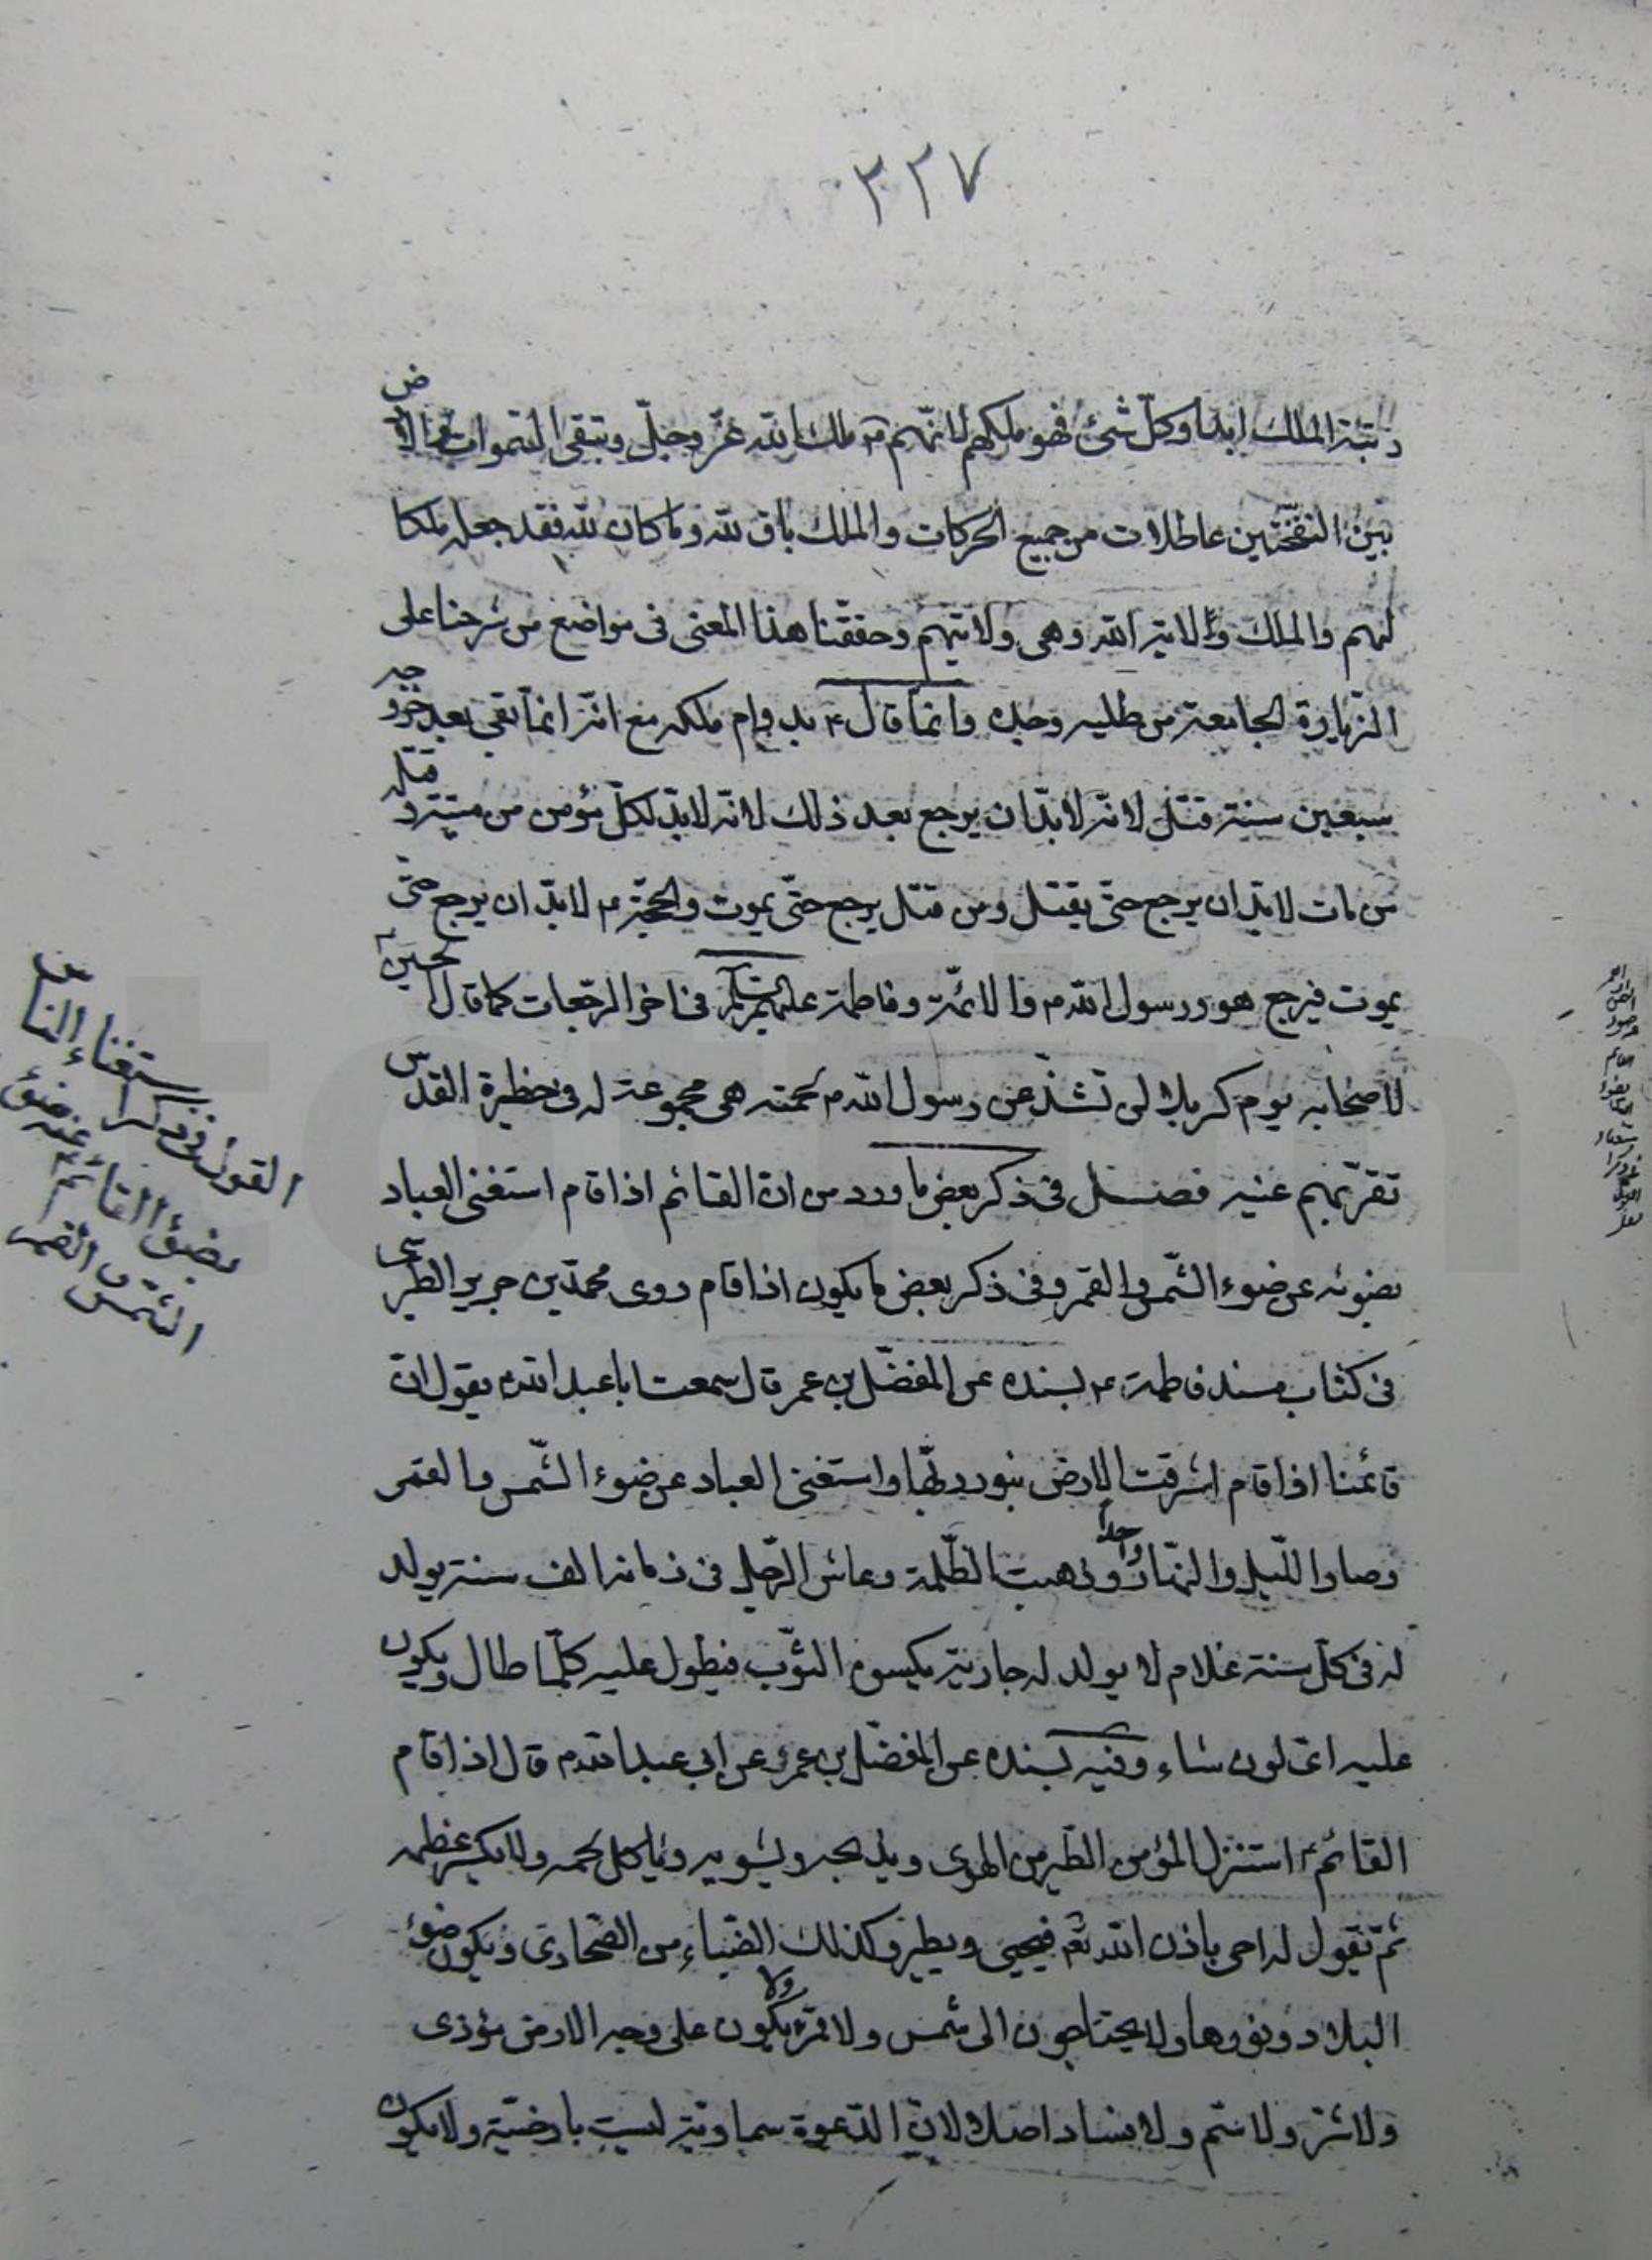 ٣٢٧
رتبة الملك ابدا وكلّ شئ فهو ملكهم لانّهم ملك الله عزّ وجلّ وتبقى السّموات والارض
بين النفختين عاطلات من جميع الحركات والملك باق لله وما كان لله فقد جعله ملكا
لهم والملك ولاية الله وهى ولايتهم وحققنا هذا المعنى فى مواضع من شرحنا على
الزيارة الجامعة من طلبه وجده وانّما قال ع بدوام ملكه مع انّه انّما بقى بعد خروجه
سبعين سنة قتل لانّه لابدّ ان يرجع بعد ذلك لانّه لابدّ لكلّ مؤمن من ميتة وقتلة
من مات لابدّ ان يرجع حتّى يقتل ومن قتل يرجع حتّى يموت والحجّة ع لابدّ ان يرجع حتّى
يموت فيرجع هو ورسول الله ص والائمّة وفاطمة عليهم السلم فى اخر الرجعات كما قال الحسين ع
لاصحابه يوم كربلا لن تشذّ عن رسول الله ص لحمته هى مجموعة له فى حظيرة القدس
تقرّ بهم عنيه فصل فى ذكر بعض ما ورد من انّ القائم اذا قام استغنى العباد
بضوئه عن ضوء الشّمس والقمر وفى ذكر بعض ما يكون اذا قام روى محمّد بن جرير الطبرى
فى كتاب مسند فاطمة ع بسنده عن المفضّل بن عمر قال سمعت ابا عبد الله ع يقول انّ
قائمنا اذا قام اشرقت الارض بنور ربّها واستغنى العباد عن ضوء الشّمس والقمر
وصار اللّيل والنّهار واحداً وذهبت الظّلمة وعاش الرّجل فى زمانه الف سنة يولد
له فى كلّ سنة غلام لا يولد له جارية يكسوه الثّوب فيطول عليه كلّما طال ويكون
عليه اىّ لون شاء وفيه بسنده عن المفضّل بن عمر عن ابى عبد الله ع قال اذا قام
القائم ع استنزل المؤمن الطّير من الهوى ويذبحه ويشويه وياكل لحمه ولا يكسر عظمه
ثمّ يقول له احى باذن الله تعم فيحيى ويطير وكذلك الضّباء من الصّحارى ويكون ضوء
البلاد ونورها ولا يحتاجون الى شمس ولا قمر ولا يكون على وجه الارض مؤذى
ولا شرّ ولا سمّ ولا فساد اصلا لانّ الدّعوة سماويّة ليست بارضيّة ولا يكون
القول فى ذكر استغناء الناس
بضوء القائم ع عن ضوء
الشّمس والقمر